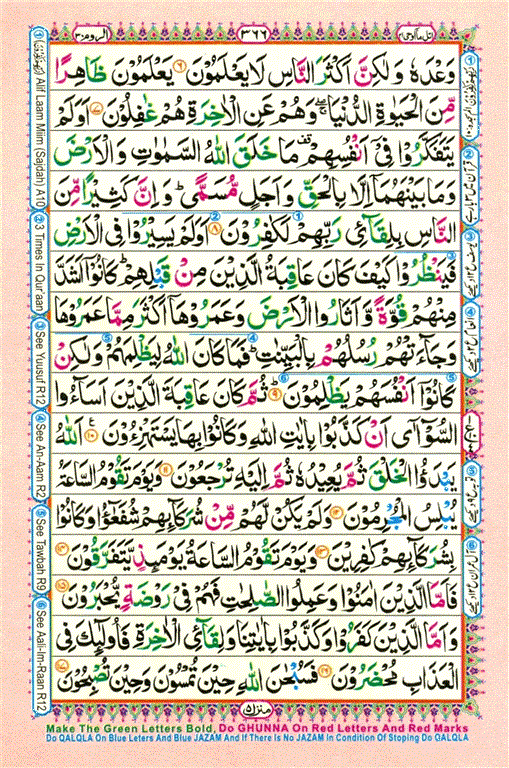 اتل ما اوحی ۲۱
۳۶۶
الروم ۳۰
وَعْدَهٗ وَلٰكِنَّ اَكْثَرَ النَّاسِ لَا يَعْلَمُوْنَ ۶ يَعْلَمُوْنَ ظَاهِرًا
مِّنَ الْحَيٰوةِ الدُّنْيَا ۖ وَهُمْ عَنِ الْاٰخِرَةِ هُمْ غٰفِلُوْنَ ۷ اَوَلَمْ
يَتَفَكَّرُوْا فِیْۤ اَنْفُسِهِمْ ۫ مَا خَلَقَ اللّٰهُ السَّمٰوٰتِ وَالْاَرْضَ
وَمَا بَيْنَهُمَاۤ اِلَّا بِالْحَقِّ وَاَجَلٍ مُّسَمًّی ؕ وَاِنَّ كَثِيْرًا مِّنَ
النَّاسِ بِلِقَآئِ رَبِّهِمْ لَكٰفِرُوْنَ ۸ اَوَلَمْ يَسِيْرُوْا فِی الْاَرْضِ
فَيَنْظُرُوْا كَيْفَ كَانَ عَاقِبَةُ الَّذِيْنَ مِنْ قَبْلِهِمْ ؕ كَانُوْۤا اَشَدَّ
مِنْهُمْ قُوَّةً وَّاَثَارُوا الْاَرْضَ وَعَمَرُوْهَاۤ اَكْثَرَ مِمَّا عَمَرُوْهَا
وَجَآءَتْهُمْ رُسُلُهُمْ بِالْبَيِّنٰتِ ؕ فَمَا كَانَ اللّٰهُ لِيَظْلِمَهُمْ وَلٰكِنْ
كَانُوْۤا اَنْفُسَهُمْ يَظْلِمُوْنَ ۹ ثُمَّ كَانَ عَاقِبَةَ الَّذِيْنَ اَسَآءُوا
السُّوْٓاٰۤی اَنْ كَذَّبُوْا بِاٰيٰتِ اللّٰهِ وَكَانُوْا بِهَا يَسْتَهْزِءُوْنَ ۱۰ اَللّٰهُ
يَبْدَؤُا الْخَلْقَ ثُمَّ يُعِيْدُهٗ ثُمَّ اِلَيْهِ تُرْجَعُوْنَ ۱۱ وَيَوْمَ تَقُوْمُ السَّاعَةُ
يُبْلِسُ الْمُجْرِمُوْنَ ۱۲ وَلَمْ يَكُنْ لَّهُمْ مِّنْ شُرَكَآئِهِمْ شُفَعٰٓؤُا وَكَانُوْا
بِشُرَكَآئِهِمْ كٰفِرِيْنَ ۱۳ وَيَوْمَ تَقُوْمُ السَّاعَةُ يَوْمَئِذٍ يَّتَفَرَّقُوْنَ ۱۴
فَاَمَّا الَّذِيْنَ اٰمَنُوْا وَعَمِلُوا الصّٰلِحٰتِ فَهُمْ فِیْ رَوْضَةٍ يُّحْبَرُوْنَ ۱۵
وَاَمَّا الَّذِيْنَ كَفَرُوْا وَكَذَّبُوْا بِاٰيٰتِنَا وَلِقَآئِ الْاٰخِرَةِ فَاُولٰٓئِكَ فِی
الْعَذَابِ مُحْضَرُوْنَ ۱۶ فَسُبْحٰنَ اللّٰهِ حِيْنَ تُمْسُوْنَ وَحِيْنَ تُصْبِحُوْنَ ۱۷
منزل ۵
① Alif Laam Miim (Sajdah) A10 ② 3 Times In Qur'aan ③ See Yuusuf R12 ④ See An-Aam R2 ⑤ See Tawbah R9 ⑥ See Aali-Im-Raan R12
Make The Green Letters Bold, Do GHUNNA On Red Letters And Red Marks
Do QALQLA On Blue Leters And Blue JAZAM And If There Is No JAZAM In Condition Of Stoping Do QALQLA